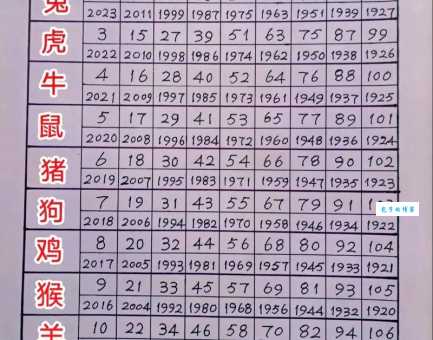 兔
2023 2011 1999 1987 1975 1963 1951 1939 1927
虎
3 15 27 39 51 63 75 87 99
2022 2010 1998 1986 1974 1962 1950 1938 1926
牛
4 16 28 40 52 64 76 88 100
2021 2009 1997 1985 1973 1961 1949 1937 1925
鼠
5 17 29 41 53 65 77 89 101
2020 2008 1996 1984 1972 1960 1948 1936 1924
猪
6 18 30 42 54 66 78 90 102
2019 2007 1995 1983 1971 1959 1947 1935 1923
狗
7 19 31 43 55 67 79 91
2018 2006 1994 1982 1970 1958 1946 1934 1922
鸡
8 20 32 44 56 68 80 92 104
2017 2005 1993 1981 1969 1957 1945 1933 1921
猴
9 21 33 45 57 69 81 93 105
2016 2004 1992 1980 1968 1956 1944 1932 1920
羊
10 22 34 46 58 70 82 94 106